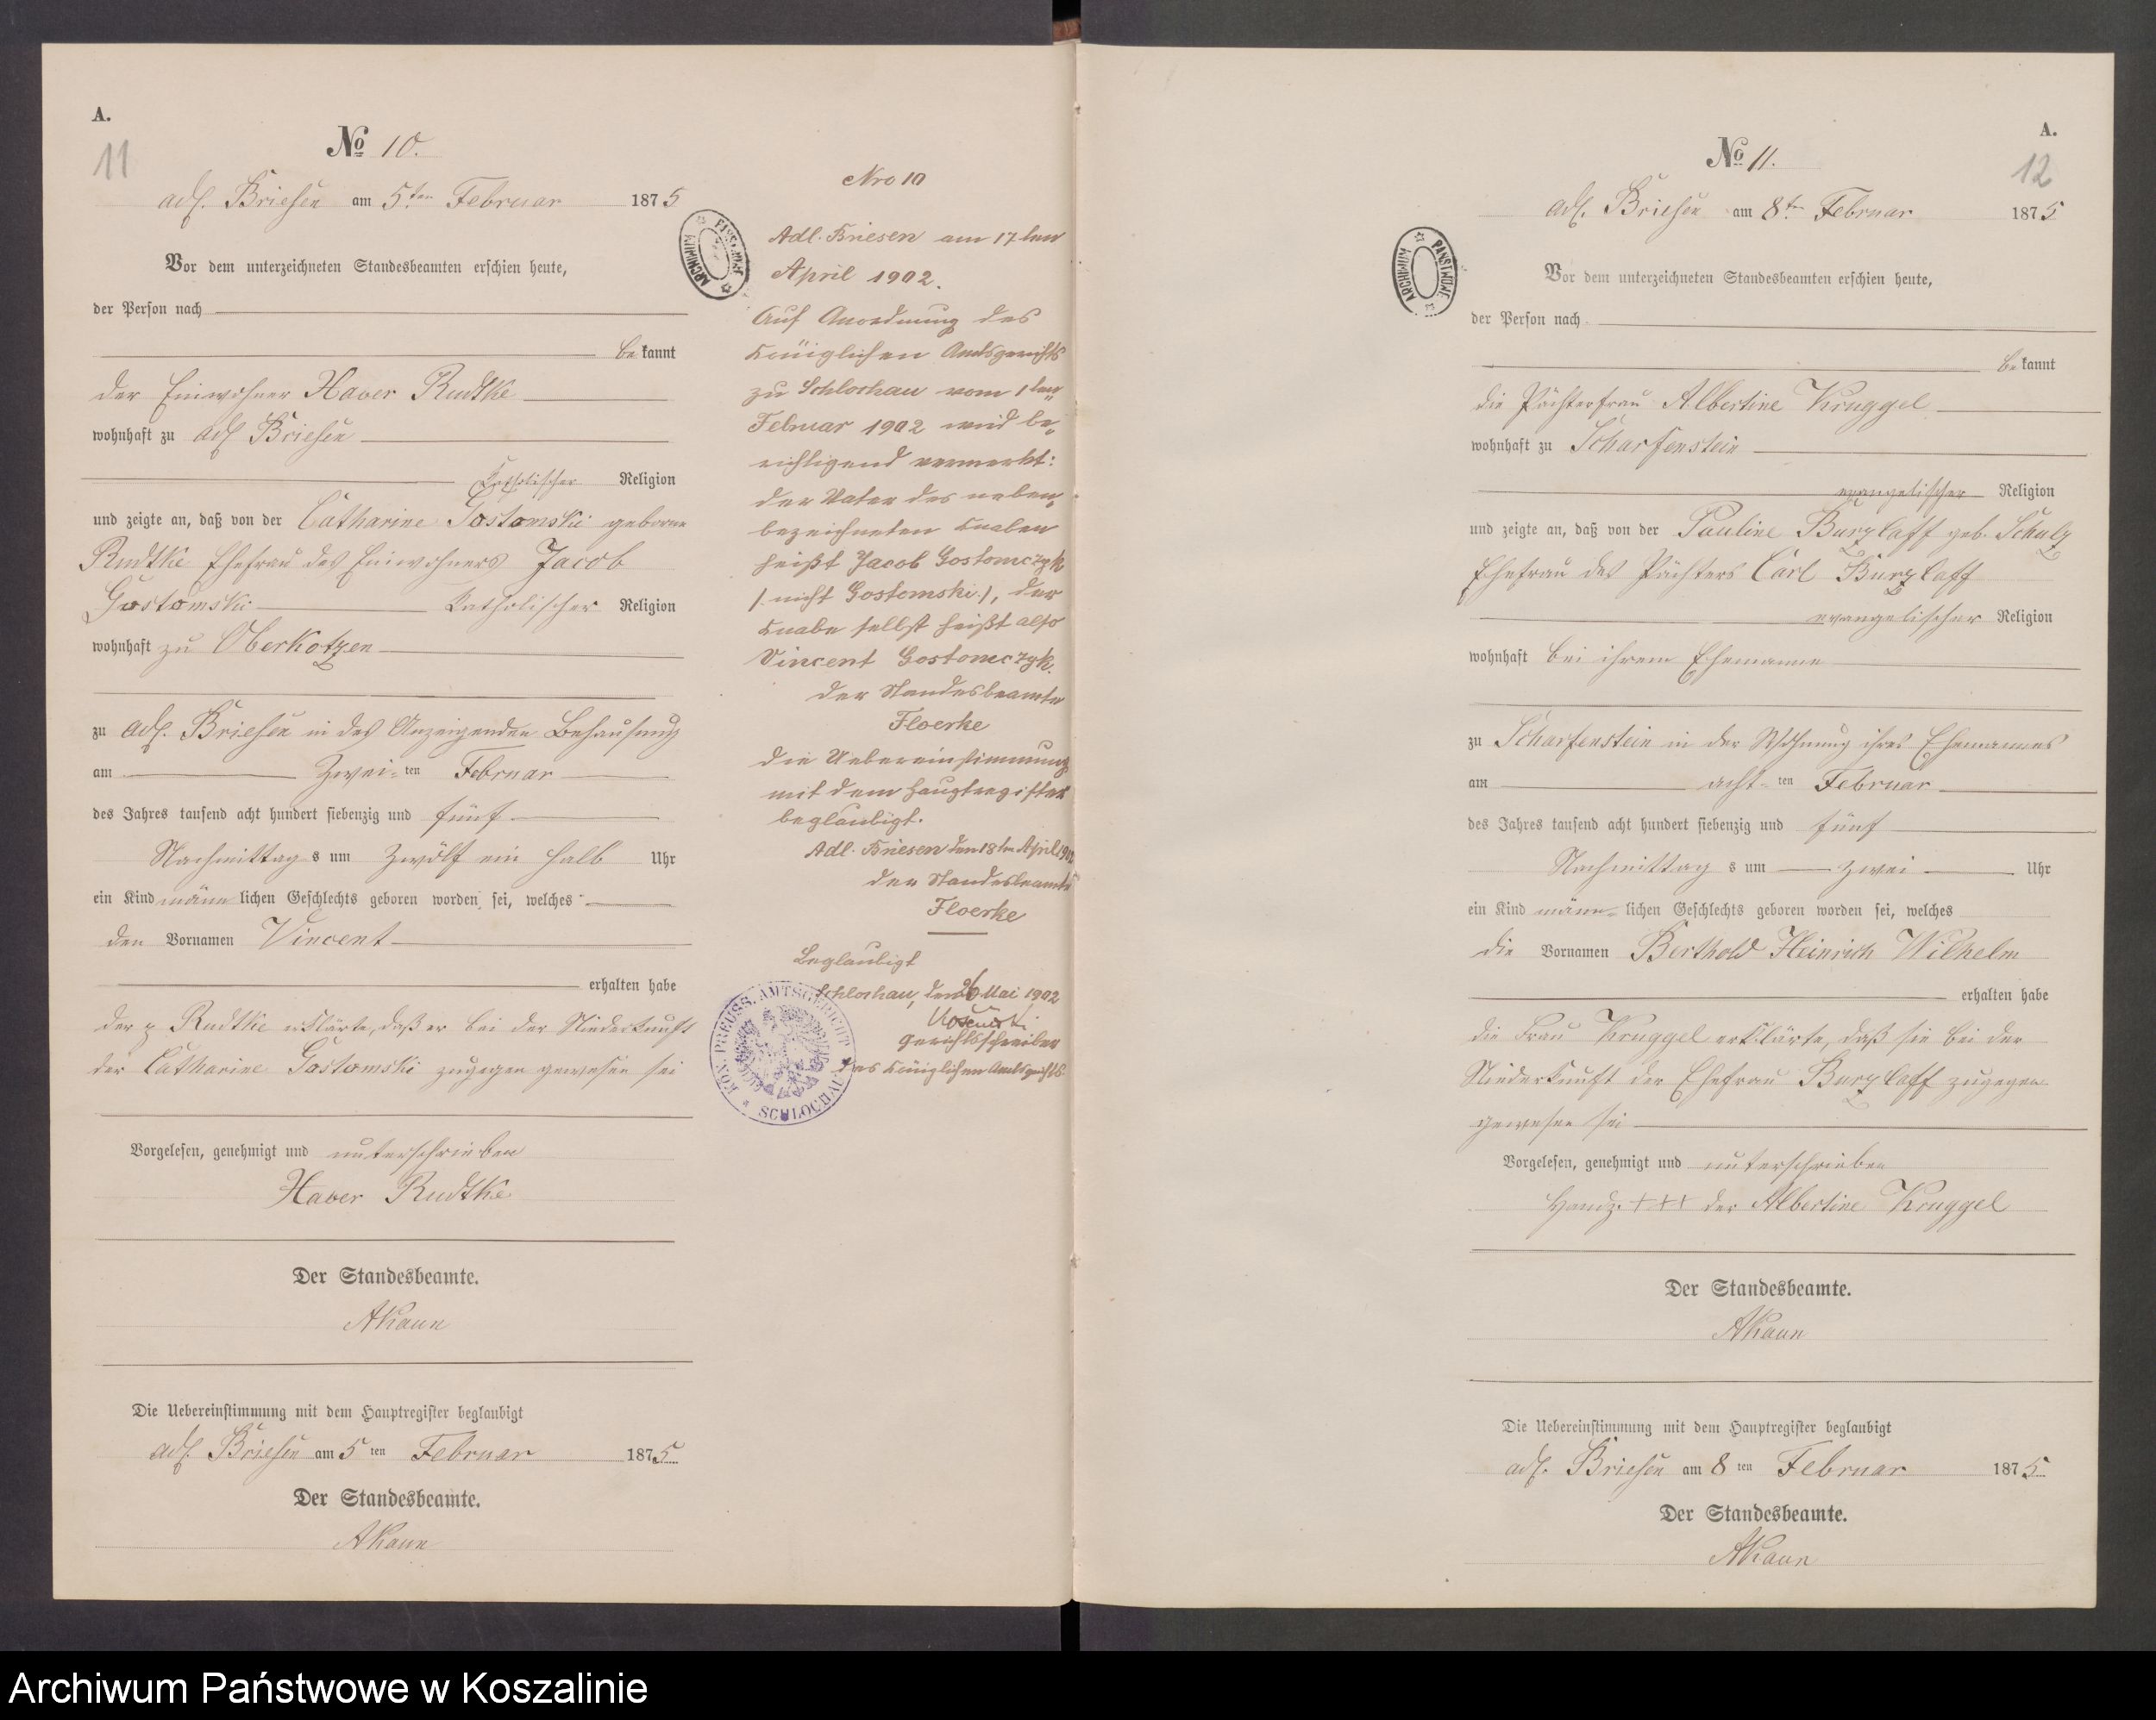 A.
11
No 10.
adl. Briesen am 5ten Februar 1875
Vor dem unterzeichneten Standesbeamten erschien heute,
der Person nach
bekannt
der Einwohner Xaver Rudtke
wohnhaft zu adl Briesen
katholischer Religion
und zeigte an, daß von der Catharine Gostomski geborne
Rudtke Ehefrau des Einwohners Jacob
Gostomski katholischer Religion
wohnhaft zu Oberkotzen
zu adl. Briesen in des Anzeigenden Behausung
am Zwei-ten Februar
des Jahres tausend acht hundert siebenzig und fünf
Nachmittags um zwölf ein halb Uhr
ein Kind männlichen Geschlechts geboren worden sei, welches
den Vornamen Vincent
erhalten habe
der p Rudtke erklärte, daß er bei der Niederkunft
der Catharine Gostomski zugegen gewesen sei
Vorgelesen, genehmigt und unterschrieben
Xaver Rudtke
Der Standesbeamte.
AKaun
Die Uebereinstimmung mit dem Hauptregister beglaubigt
adl. Briesen am 5ten Februar 1875
Der Standesbeamte.
AKaun
Nro 10
Adl. Briesen am 17ten
April 1902.
Auf Anordnung des
Königlichen Amtsgerichts
zu Schlochau vom 1ten
Februar 1902 wird be„
richtigend vermerkt:
der Vater des neben„
bezeichneten Knaben
heißt Jacob Gostomczyk
/: nicht Gostomski :/, der
Knabe selbst heißt also
Vincent Gostomczyk.
Der Standesbeamte
Floerke
Die Uebereinstimmung
mit dem Hauptregister
beglaubigt.
Adl. Briesen den 18ten April 1902
Der Standesbeamte
Floerke
Beglaubigt
Schlochau, den 26 Mai 1902
Gerichtsschreiber
des Königlichen Amtsgerichts
KÖN. PREUSS. AMTSGERICHT IV. SCHLOCHAU
ARCHIWUM PAŃSTWOWE
A.
12
No 11.
adl. Briesen am 8ten Februar 1875
ARCHIWUM PAŃSTWOWE
Vor dem unterzeichneten Standesbeamten erschien heute,
der Person nach
bekannt
die Pächterfrau Albertine Kruggel
wohnhaft zu Scharfenstein
evangelischer Religion
und zeigte an, daß von der Pauline Burzlaff geb. Schulz
Ehefrau des Pächters Carl Burzlaff
evangelischer Religion
wohnhaft bei ihrem Ehemanne
zu Scharfenstein in der Wohnung ihres Ehemannes
am acht-ten Februar
des Jahres tausend acht hundert siebenzig und fünf
Nachmittags um zwei Uhr
ein Kind männ-lichen Geschlechts geboren worden sei, welches
die Vornamen Berthold Heinrich Wilhelm
erhalten habe
die Frau Kruggel erklärte, daß sie bei der
Niederkunft der Ehefrau Burzlaff zugegen
gewesen sei
Vorgelesen, genehmigt und unterschrieben
Handz. +++ der Albertine Kruggel
Der Standesbeamte.
AKaun
Die Uebereinstimmung mit dem Hauptregister beglaubigt
adl. Briesen am 8ten Februar 1875
Der Standesbeamte.
AKaun
Archiwum Państwowe w Koszalinie